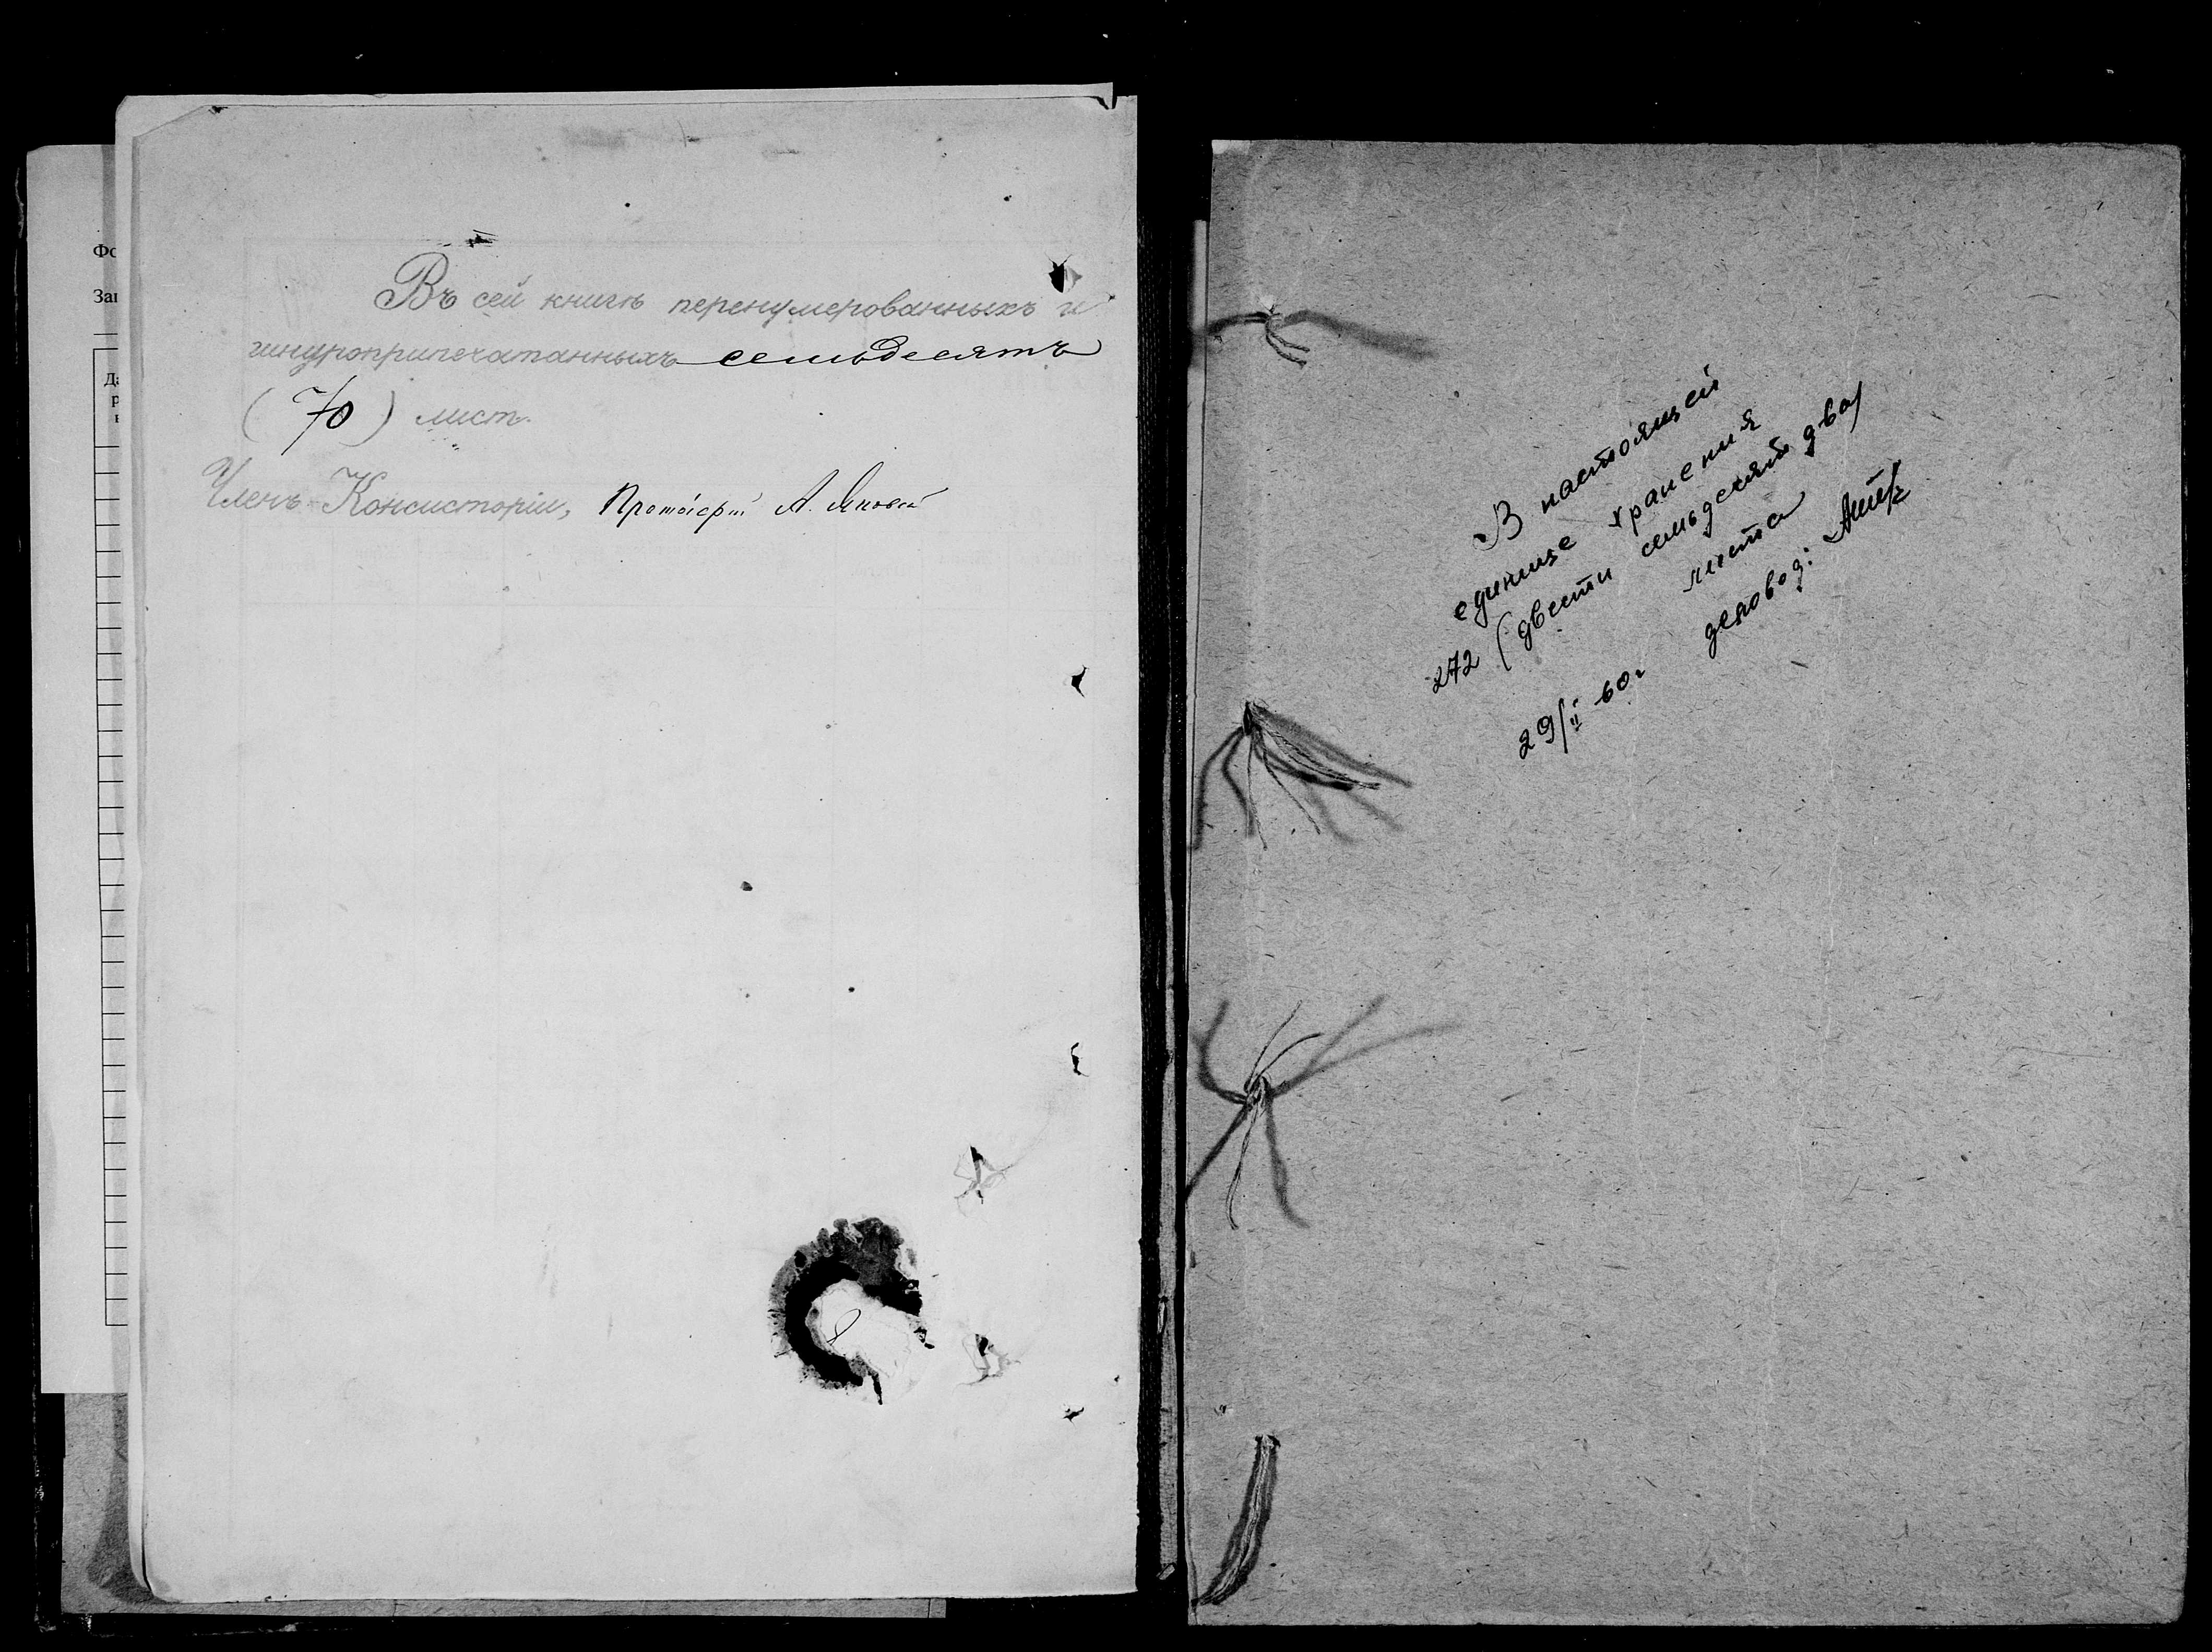 Фо
Заг
Въ сей книгѣ перенумерованныхъ и
шнуроприпечатанныхъ семьдесятъ
(70) лист.
Членъ Консисторіи, Протоіерей А.
В настоящей
единице хранения
272 (двести семьдесят два)
листа
29/II 60г деловод: